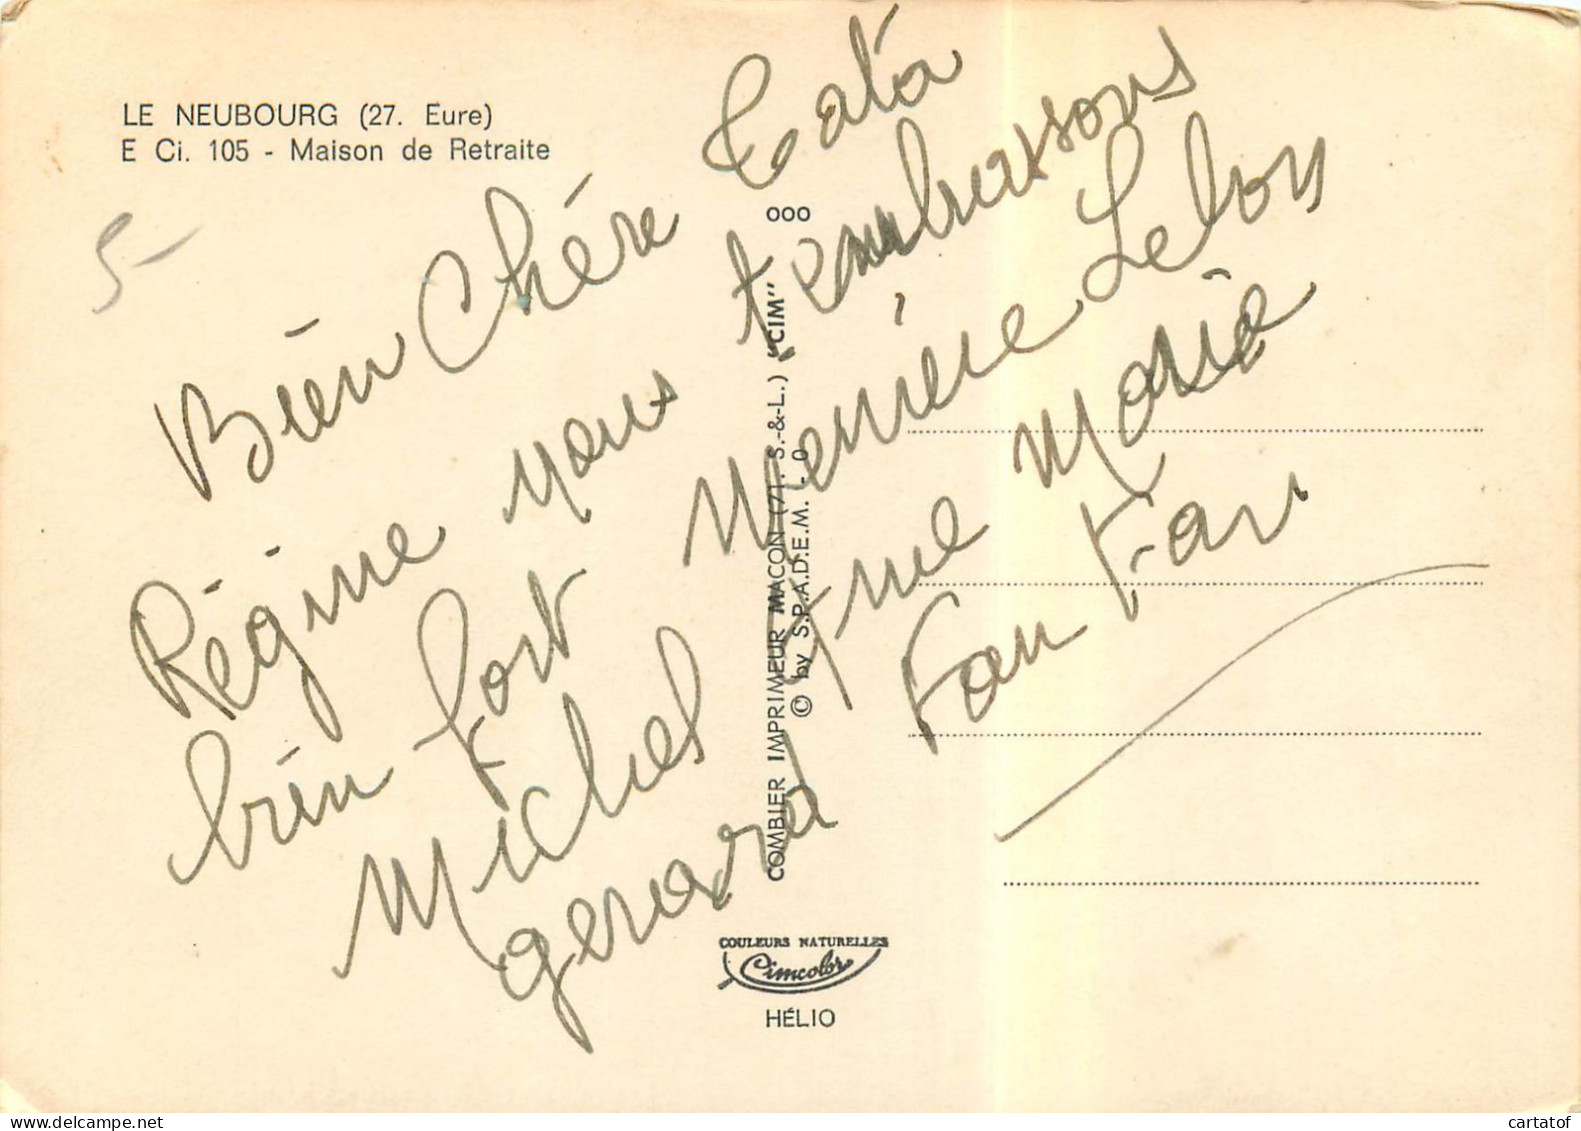 LE NEUBOURG (27. Eure)
E Ci. 105 - Maison de Retraite
5-
Bien Chère Tata
Régine nous t'embrassons
bien fort Mémène Lebon
Michel Marie
gérard Fan Fan
OOO
COMBIER IMPRIMEUR MACON (71. S.-&-L.) "CIM"
© by S.P.A.D.E.M. - O
COULEURS NATURELLES
Cimcolor
HÉLIO
cartatof